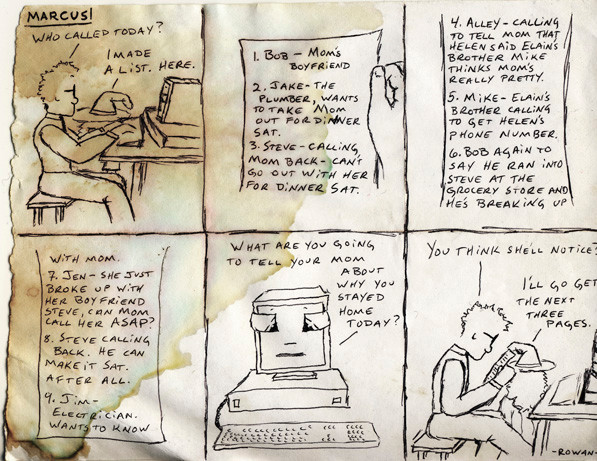 MARCUS!
WHO CALLED TODAY?
I MADE
A LIST. HERE.
1. BOB - MOM'S
BOYFRIEND
2. JAKE - THE
PLUMBER, WANTS
TO TAKE MOM
OUT FOR DINNER
SAT.
3. STEVE - CALLING
MOM BACK - CAN'T
GO OUT WITH HER
FOR DINNER SAT.
4. ALLEY - CALLING
TO TELL MOM THAT
HELEN SAID ELAIN'S
BROTHER MIKE
THINKS MOM'S
REALLY PRETTY.
5. MIKE - ELAIN'S
BROTHER CALLING
TO GET HELEN'S
PHONE NUMBER.
6. BOB AGAIN TO
SAY HE RAN INTO
STEVE AT THE
GROCERY STORE AND
HE'S BREAKING UP
WITH MOM.
7. JEN - SHE JUST
BROKE UP WITH
HER BOYFRIEND
STEVE, CAN MOM
CALL HER ASAP?
8. STEVE CALLING
BACK. HE CAN
MAKE IT SAT.
AFTER ALL.
9. JIM -
ELECTRICIAN.
WANTS TO KNOW
WHAT ARE YOU GOING
TO TELL YOUR MOM
ABOUT
WHY YOU
STAYED
HOME
TODAY?
YOU THINK SHE'LL NOTICE?
I'LL GO GET
THE NEXT
THREE
PAGES.
-ROWAN-